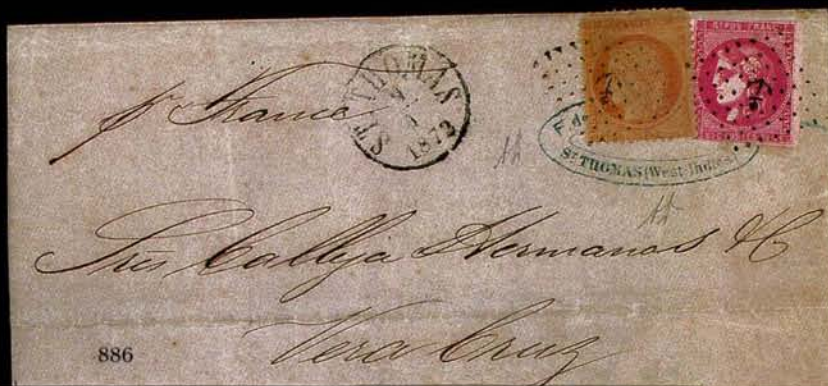 pr France
ST THOMAS
1872
REPUB FRANC
F. de
ST THOMAS (West-Indies)
Sres Calleja Hermanos & C
Vera Cruz
886